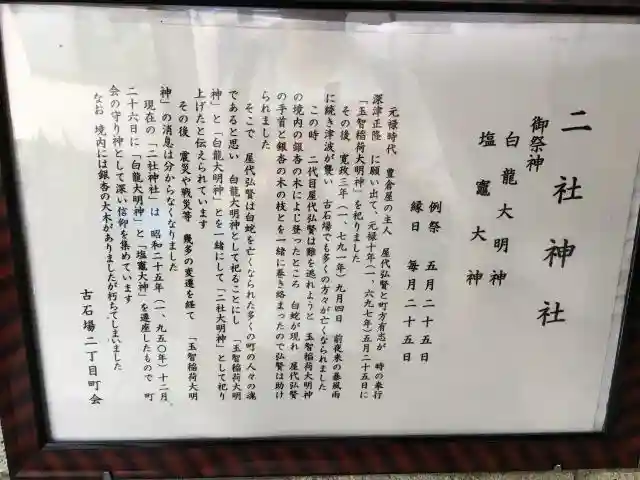 二社神社
御祭神
白龍大明神
塩竈大神
例祭 五月二十五日
縁日 毎月二十五日
元禄時代 豊倉屋の主人 屋代弘賢と町方有志が 時の奉行
深津正隆 に願い出て、元禄十年(一、六九七年)五月二十五日に
「玉智稲荷大明神」を祀りました
その後 寛政三年(一、七九一年)九月四日 前夜来の暴風雨
に続き津波が襲い 古石場でも多くの方々が亡くなられました
この時 二代目屋代弘賢は難を逃れようと 玉智稲荷大明神
の境内の銀杏の木によじ登ったところ 白蛇が現れ 屋代弘賢
の手首と銀杏の木の枝とを一緒に巻き絡まったので弘賢は助け
られました
そこで 屋代弘賢は白蛇を亡くなられた多くの町の人々の魂
であると思い 白龍大明神として祀ることにし 「玉智稲荷大明
神」と「白龍大明神」とを一緒にして「二社大明神」として祀り
上げたと伝えられています
その後 震災や戦災等 幾多の変遷を経て 「玉智稲荷大明
神」の消息は分からなくなりました
現在の「二社神社」は 昭和二十五年(一、九五〇年)十二月
二十六日に「白龍大明神」と「塩竈大神」を遷座したもので 町
会の守り神として深い信仰を集めています
なお 境内には銀杏の大木がありましたが朽ちてしまいました
古石場二丁目町会